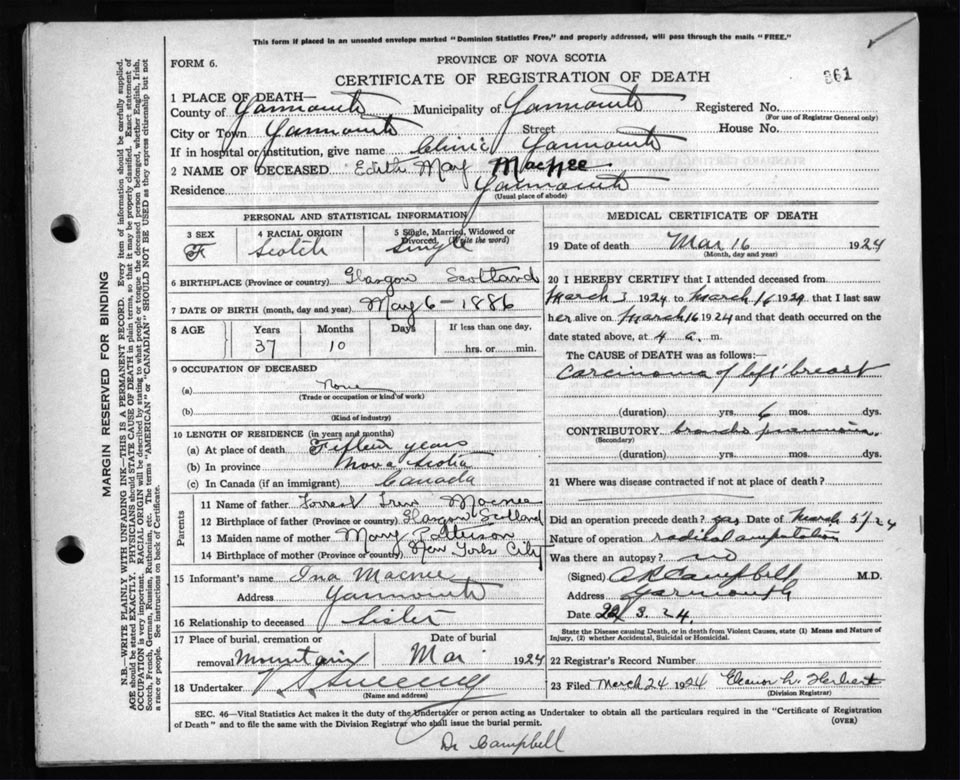 This form if placed in an unsealed envelope marked "Dominion Statistics Free," and properly addressed, will pass through the mails "FREE."
FORM 6.
PROVINCE OF NOVA SCOTIA
CERTIFICATE OF REGISTRATION OF DEATH
361
MARGIN RESERVED FOR BINDING
N.B.—WRITE PLAINLY WITH UNFADING INK—THIS IS A PERMANENT RECORD. Every item of information should be carefully supplied.
AGE should be stated EXACTLY. PHYSICIANS should STATE CAUSE OF DEATH in plain terms, so that it may be properly classified. Exact statement of
OCCUPATION is very important. RACIAL ORIGIN will be described by stating to what people or tongue the deceased person belonged, whether English, Irish,
Scotch, French, German, Russian, Ruthenian, etc. The terms "AMERICAN" or "CANADIAN" SHOULD NOT BE USED as they express citizenship but not
a race or people. See instructions on back of Certificate.
1 PLACE OF DEATH—
County of Yarmouth Municipality of Yarmouth Registered No.
(For use of Registrar General only)
City or Town Yarmouth Street House No.
If in hospital or institution, give name Clinic Yarmouth
2 NAME OF DECEASED Edith May MacNee
Residence Yarmouth
(Usual place of abode)
PERSONAL AND STATISTICAL INFORMATION
3 SEX F
4 RACIAL ORIGIN Scotch
5 Single, Married, Widowed or Divorced (Write the word) Single
6 BIRTHPLACE (Province or country) Glasgow Scotland
7 DATE OF BIRTH (month, day and year) May 6 - 1886
8 AGE Years Months Days If less than one day,
37 10 hrs. or min.
9 OCCUPATION OF DECEASED
(a) None
(Trade or occupation or kind of work)
(b)
(Kind of industry)
10 LENGTH OF RESIDENCE (in years and months)
(a) At place of death Fifteen years
(b) In province Nova Scotia
(c) In Canada (if an immigrant) Canada
Parents
11 Name of father Forrest Macnee
12 Birthplace of father (Province or country) Glasgow Scotland
13 Maiden name of mother Mary Patterson
14 Birthplace of mother (Province or country) New York City
15 Informant's name Ina Macnee
Address Yarmouth
16 Relationship to deceased Sister
17 Place of burial, cremation or removal Mountain Date of burial Mar 1924
18 Undertaker
(Name and address)
MEDICAL CERTIFICATE OF DEATH
19 Date of death Mar 16 1924
(Month, day and year)
20 I HEREBY CERTIFY that I attended deceased from
March 3 1924 to March 16 1924, that I last saw
her alive on March 16 1924 and that death occurred on the
date stated above, at 4 a. m.
The CAUSE OF DEATH was as follows:—
Carcinoma of left breast
(duration) yrs. 6 mos. dys.
CONTRIBUTORY broncho pneumonia
(Secondary)
(duration) yrs. mos. dys.
21 Where was disease contracted if not at place of death?
Did an operation precede death? yes Date of March 5/24
Nature of operation radical amputation
Was there an autopsy? no
(Signed) Campbell M.D.
Address Yarmouth
Date 22/3.24.
State the Disease causing Death, or in death from Violent Causes, state (1) Means and Nature of
Injury, (2) whether Accidental, Suicidal or Homicidal.
22 Registrar's Record Number
23 Filed March 24 1924 Eleanor L. Herbert
(Division Registrar)
SEC. 46—Vital Statistics Act makes it the duty of the Undertaker or person acting as Undertaker to obtain all the particulars required in the "Certificate of Registration
of Death" and to file the same with the Division Registrar who shall issue the burial permit. (OVER)
Dr Campbell